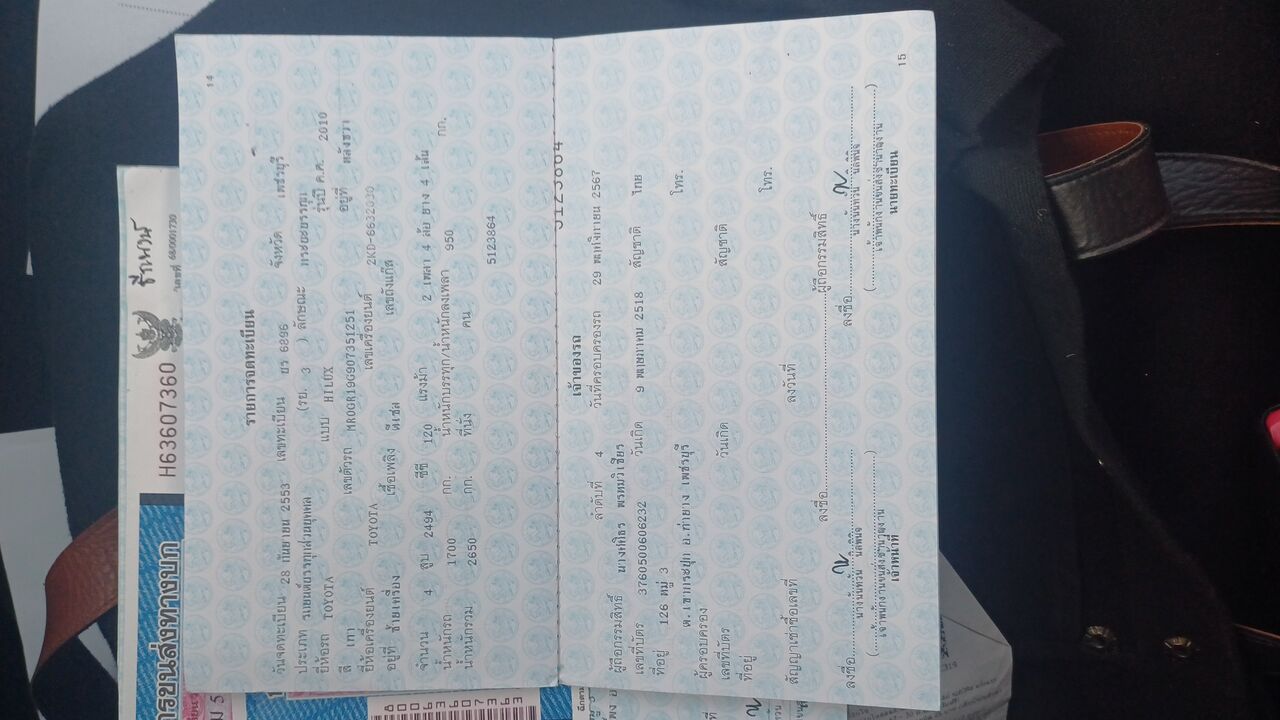 14
รายการจดทะเบียน
วันจดทะเบียน 28 กันยายน 2553 เลขทะเบียน 6896 จังหวัด เพชรบุรี
ประเภท รถยนต์บรรทุกส่วนบุคคล (รย. 3 ) ลักษณะ กระบะบรรทุก
ยี่ห้อรถ TOYOTA แบบ HILUX รุ่นปี ค.ศ. 2010
สี เทา เลขตัวรถ MR0GR19G907351251 อยู่ที่
ยี่ห้อเครื่องยนต์ TOYOTA เลขเครื่องยนต์
อยู่ที่ ซ้ายเครื่อง เชื้อเพลิง ดีเซล เลขถังแก๊ส
จำนวน 4 สูบ 2494 ซีซี 120 แรงม้า 2 เพลา 4 ล้อ ยาง 4 เส้น
น้ำหนักรถ 1700 กก. น้ำหนักบรรทุก/น้ำหนักลงเพลา 950 กก.
น้ำหนักรวม 2650 กก. ที่นั่ง คน
5123864
เจ้าของรถ
ลำดับที่ 4 วันที่ครอบครองรถ 29 พฤศจิกายน 2567
ผู้ถือกรรมสิทธิ์ พรหมวิเชียร
เลขที่บัตร 3760500606232 วันเกิด 9 พฤษภาคม 2518 สัญชาติ ไทย
ที่อยู่ 126 หมู่ 3 โทร.
ต.เขากระปุก อ.ท่ายาง เพชรบุรี
ผู้ครอบครอง
เลขที่บัตร วันเกิด สัญชาติ
ที่อยู่ โทร.
สัญญาเช่าซื้อเลขที่ ลงวันที่
ลงชื่อ ผู้ถือกรรมสิทธิ์
ลงชื่อ ลงชื่อ
เจ้าหน้าที่ นายทะเบียน
15
H63607360
ารขนส่งทางบก